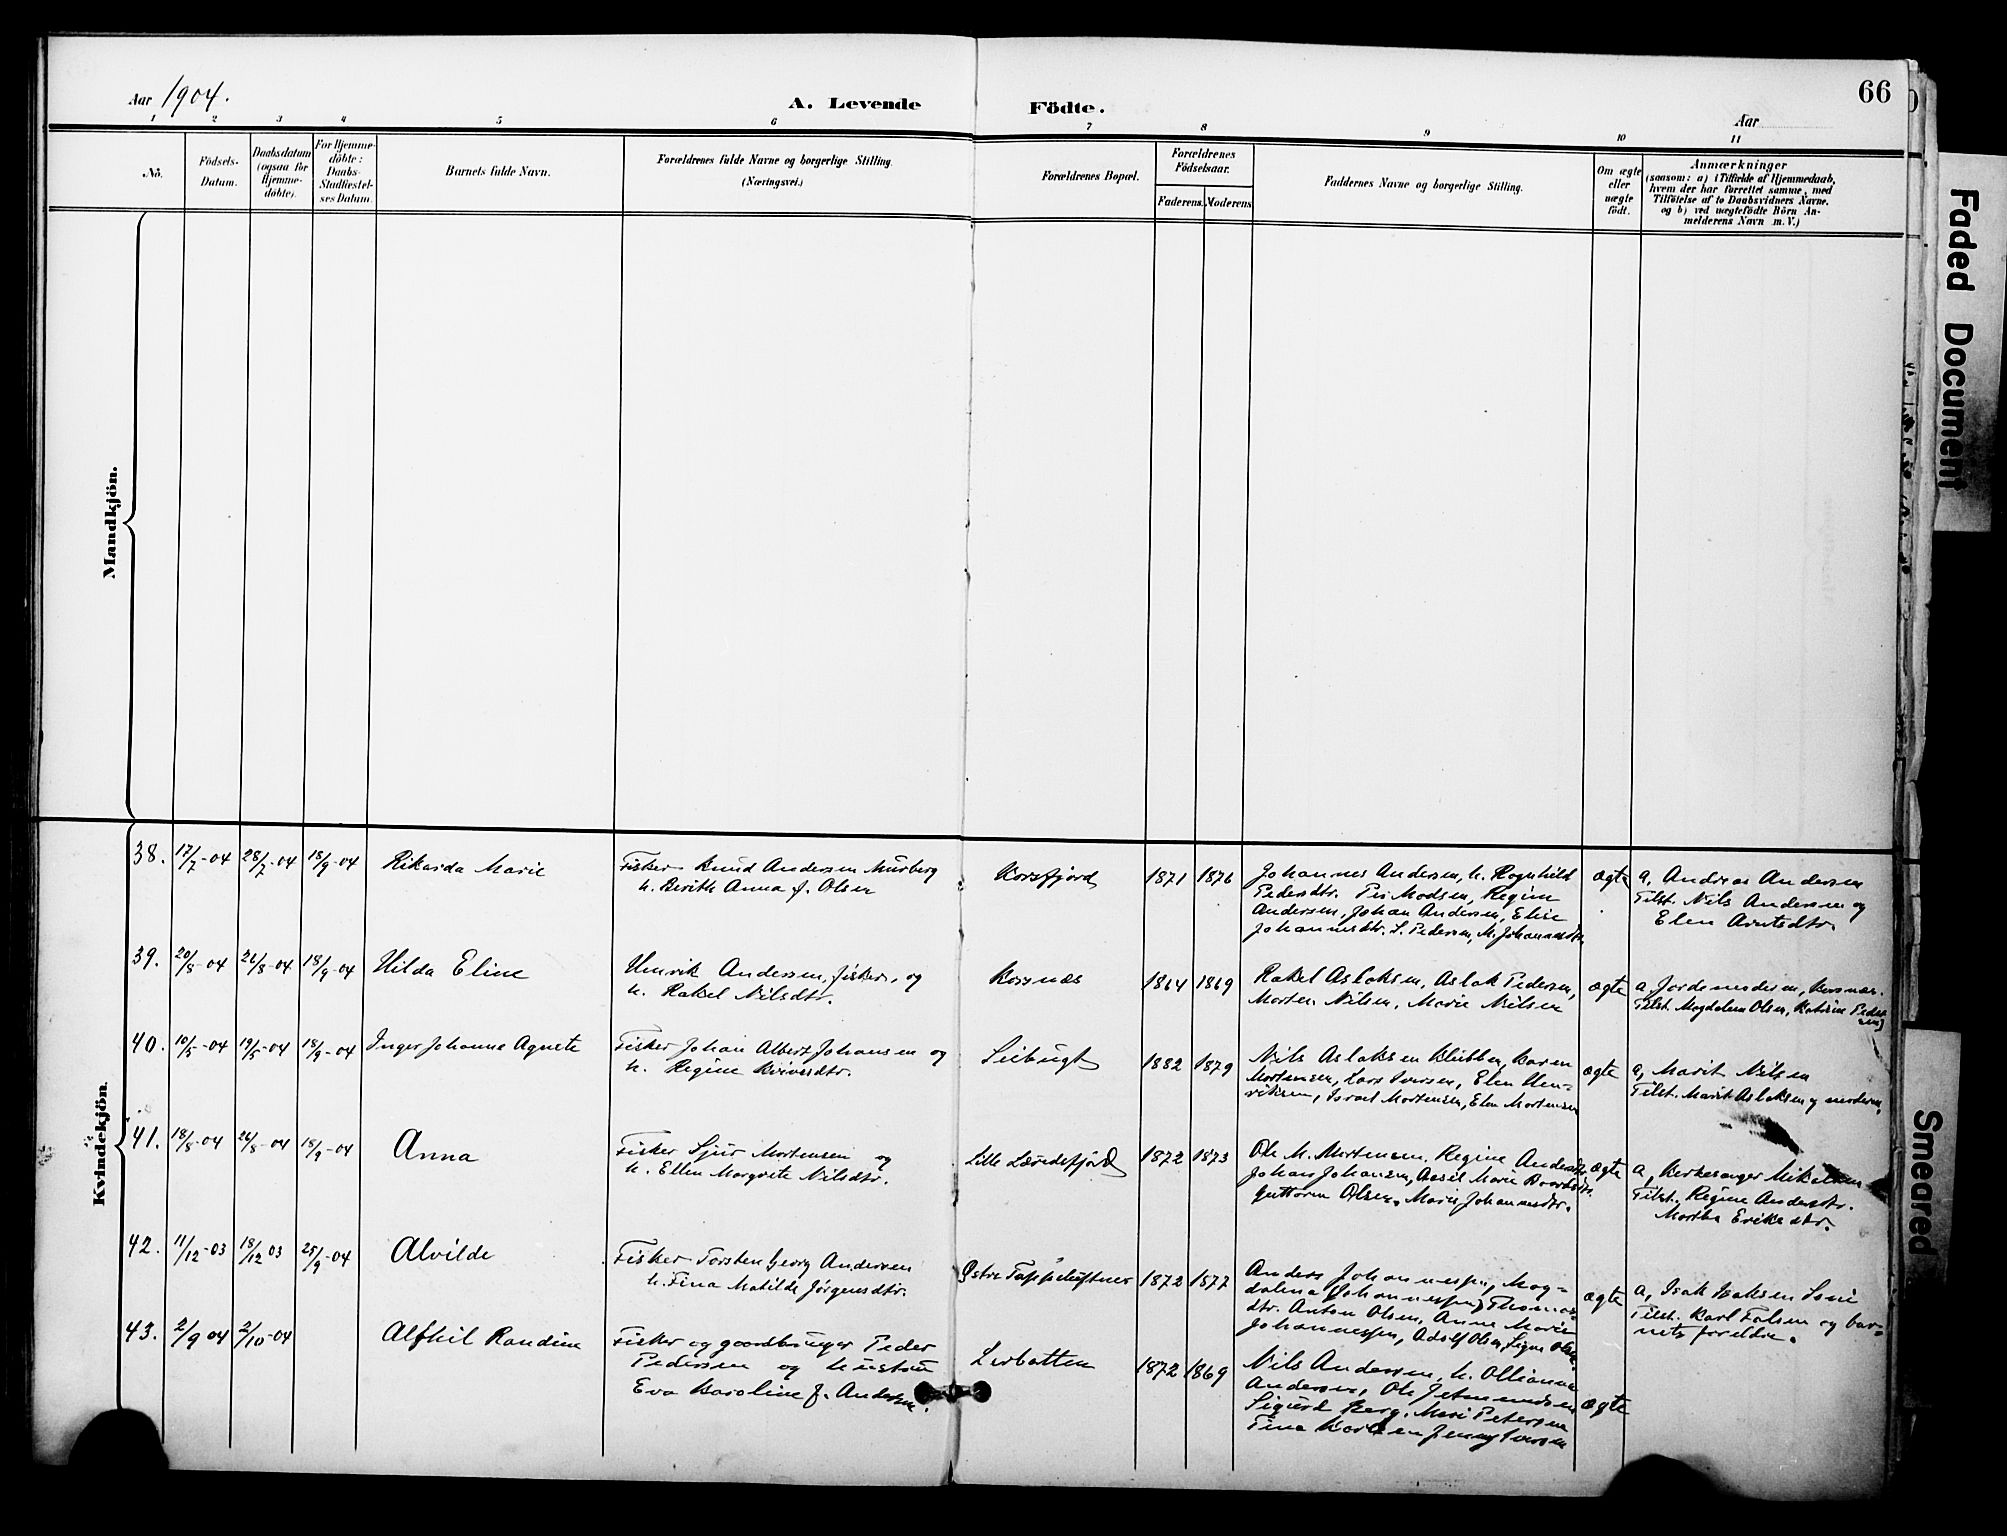 66
Aar 1904.
A. Levende Födte.
Aar
1 2 3 4 5 6 7 8 9 10 11
No.
Födsels-
Datum.
Daabsdatum
(ogsaa for
Hjemme-
döbte).
For Hjemme-
döbte:
Daabs-
Stadfæstel-
ses Datum.
Barnets fulde Navn.
Forældrenes fulde Navne og borgerlige Stilling.
(Næringsvei.)
Forældrenes Bopæl.
Forældrenes
Födselsaar.
Faderens.
Moderens
Faddernes Navne og borgerlige Stilling.
Om ægte
eller
uægte
födt.
Anmærkninger
(saasom: a) i Tilfælde af Hjemmedaab,
hvem der har forrettet samme, med
Tilföielse af to Daabsvidners Navne.
og b) ved uægtefödte Börn An-
melderens Navn m. V.)
Mandkjön.
Kvindekjön.
38. 17/7-04 28/7-04 18/9-04 Rikarda Marie
Fisker Knud Andersen Murberg
h. Berith Anna f. Olsen
Korsfjord 1871 1876
Johannes Andersen, h. Ragnhild
Pedersdtr. Per Madsen, Regine
Andersen, Johan Andersen, Elise
Johannesdtr. L. Pedersen, M. Johannesdtr.
ægte
a, Andreas Andersen
Tilst. Nils Andersen og
Elen Arntsdtr.
39. 20/8-04 26/8-04 18/9-04 Hilda Eline
Henrik Andersen, fisker, og
h. Rakel Nilsdtr.
Korsnæs 1864 1869
Rakel Aslaksen, Aslak Pedersen,
Morten Nilsen, Marie Nilsen
ægte
a, Jordemoderen, Korsnæs.
Tilst. Magdalena Olsen, Katrine Peder-
sen)
40. 10/5-04 19/5-04 18/9-04 Inger Johanne Agnete
Fisker Johan Albert Johansen og
h. Regine Iversdtr.
Leibugt 1882 1879
Nils Aslaksen Klubben, Karen
Mortensen, Lars Iversen, Elen Hen-
riksen, Israel Mortensen, Elen Mortensen
ægte
a, Marit Nilsen
Tilst. Marit Aslaksen og moderen,
41. 18/8-04 26/8-04 18/9-04 Anna
Fisker Sjur Mortensen og
h. Ellen Margrete Nilsdtr.
Lille Lærredsfjord 1872 1873
Ole M. Mortensen, Regine Andersdtr.
Johan Johansen, Marie
Guttorm Olsen, Marie Johannesdtr.
ægte
a, Kirkesanger Mikalsen
Tilst. Regine Andersdtr.
Martha Eriksdtr.
42. 11/12-03 18/12 03 25/9-04 Alvilde
Fisker Torsten Georg Andersen
h. Fina Matilde Jörgensdtr.
Østre Tappeluftnes 1872 1877
Anders Johannessen, Mag-
dalena Johannessen, Thomas-
dtr. Anton Olsen, Anne Marie
Johannessen, Adolf Olsen, Signe Olsen.
ægte
a, Isak Isaksen
Tilst. Karl Falsen og bar-
nets foreldre.
43. 2/9 04 2/10-04 Alfhil Randine
Fisker og gaardbruger Peder
Pedersen og hustru
Eva Karoline f. Andersen.
Lerbotten 1872 1869
Nils Andersen, h. Ollianna
Andersen, Ole
Sigurd Berg, Mari Petersen
Tina Karlsen Jenny Iversen
ægte
Faded Document
Smeared